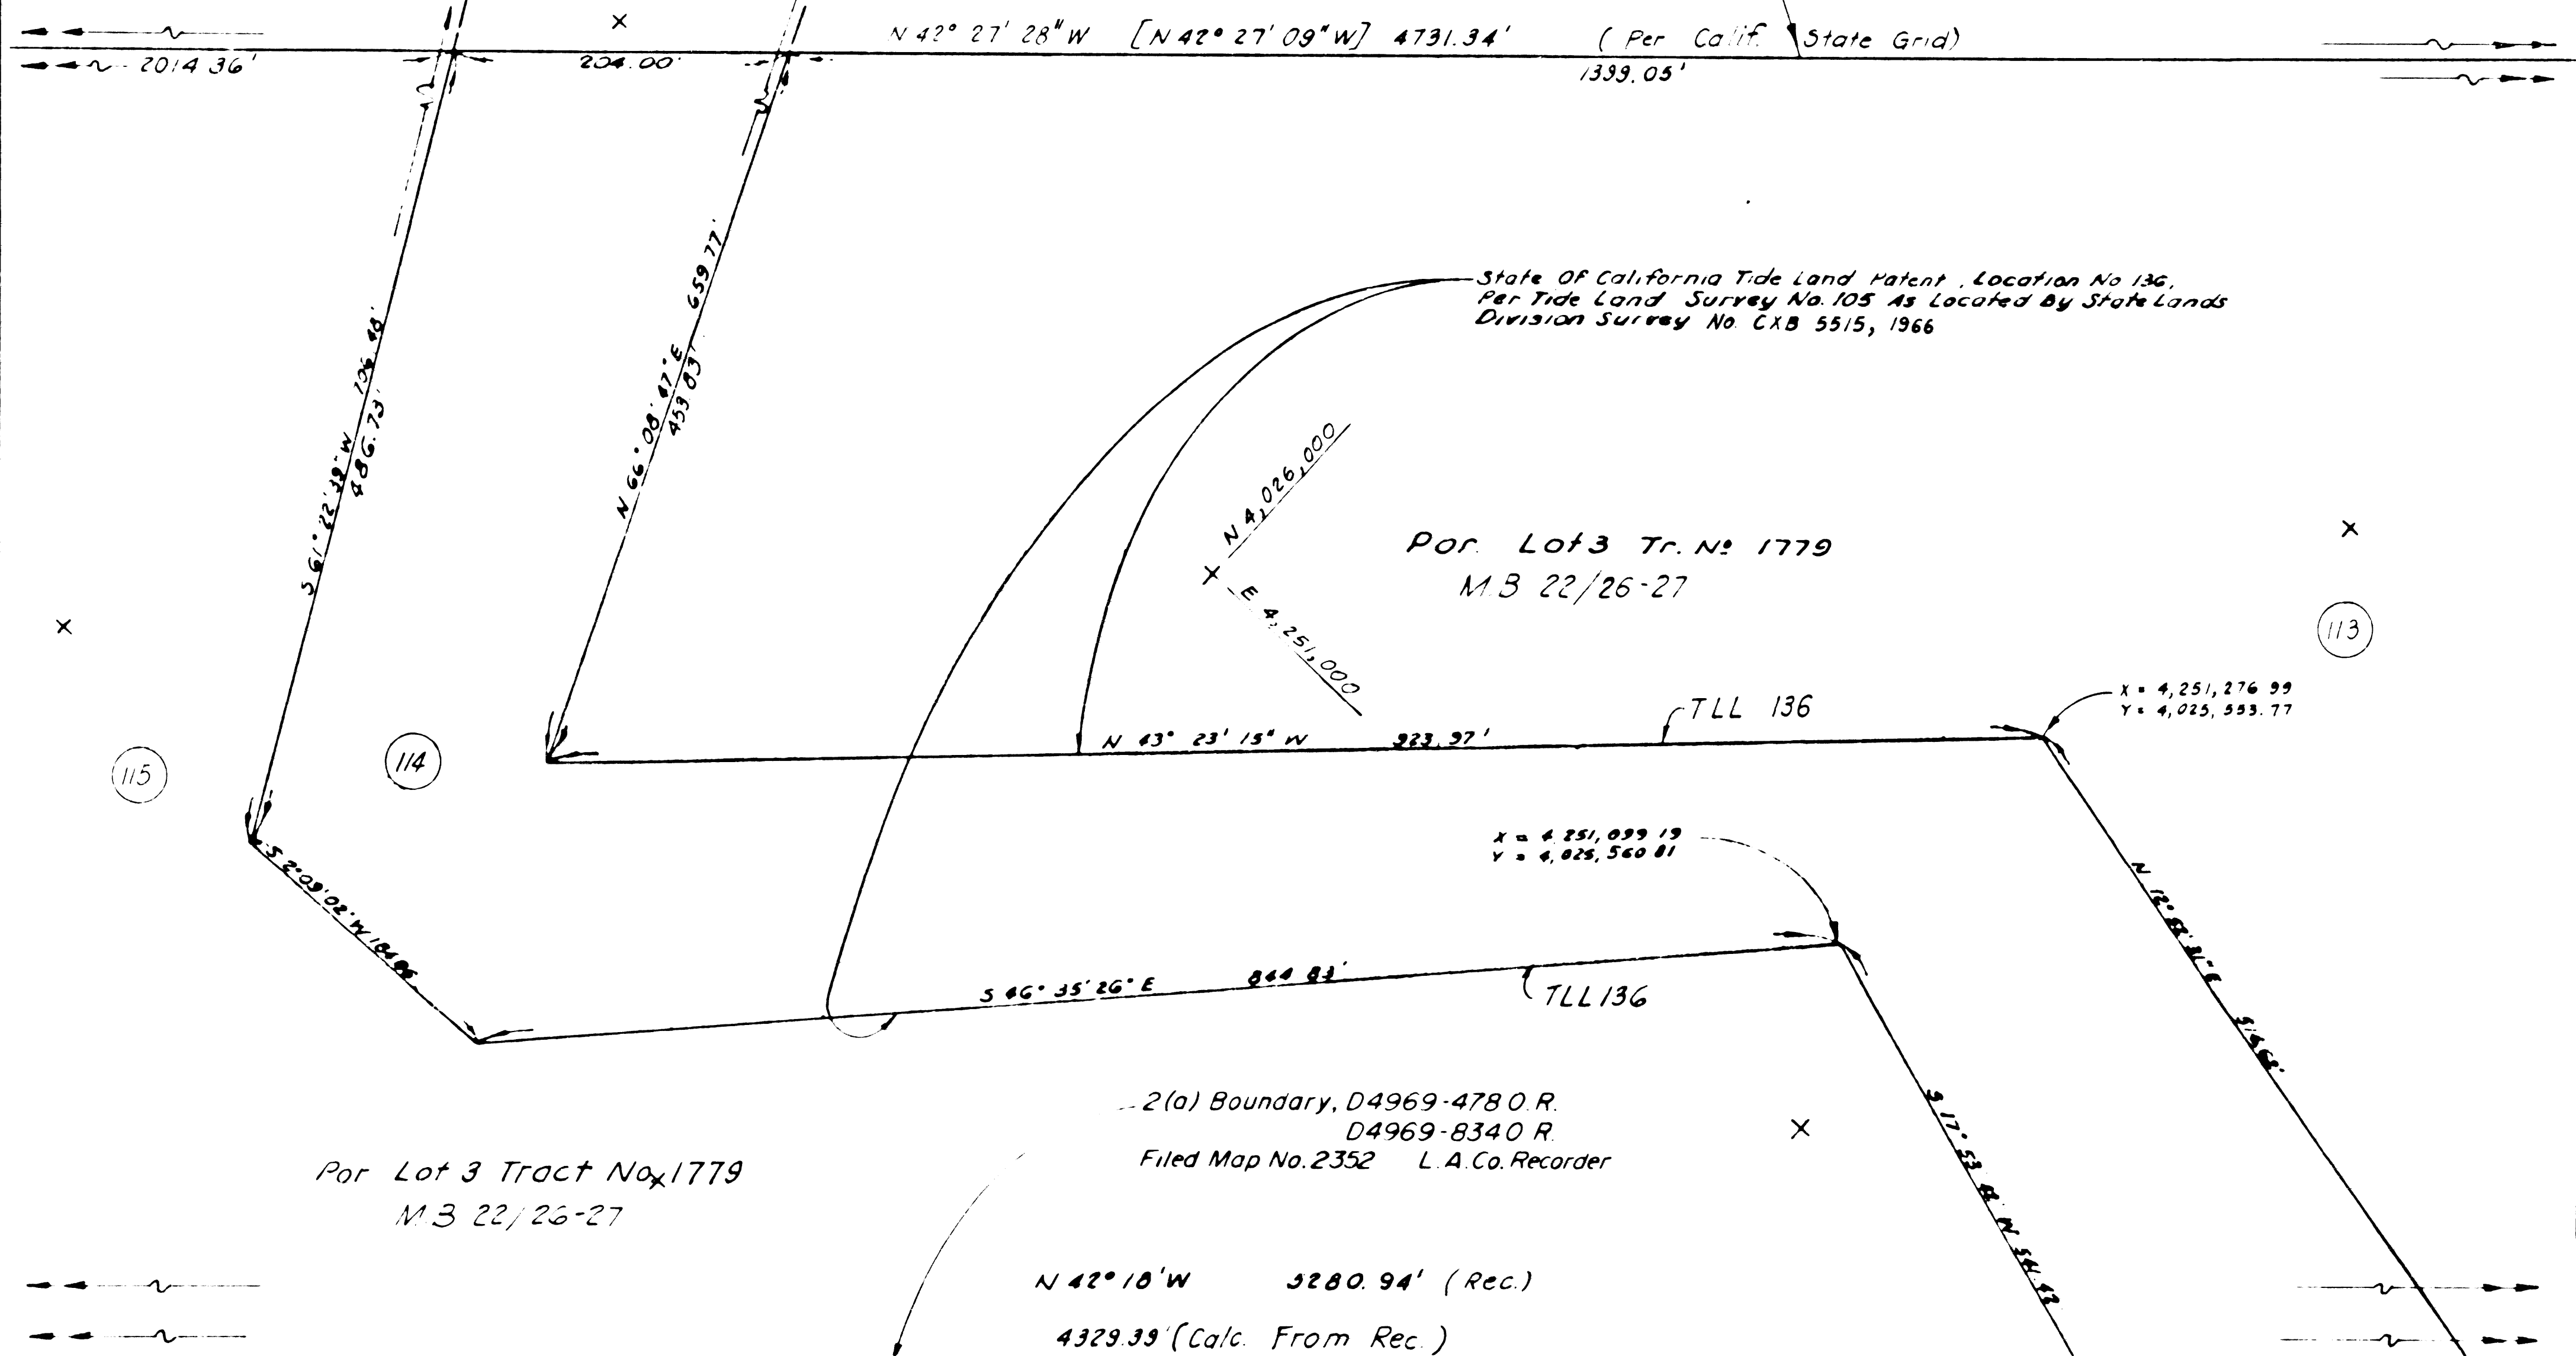 N 42° 27' 28" W [N 42° 27' 09" W] 4731.34' (Per Calif. State Grid)
2014 36'
204.00'
1399.05'
S 61° 22' 39" W
486.73'
N 66° 08' 47" E 659 77'
453.83'
State Of California Tide Land Patent, Location No 136,
Per Tide Land Survey No. 105 As Located By State Lands
Division Survey No. CXB 5515, 1966
N 4,026,000
E 4,251,000
Por. Lot 3 Tr. Nº 1779
M.B 22/26-27
113
X = 4,251,276 99
Y = 4,025,553.77
TLL 136
N 43° 23' 15" W 923.97'
115
114
X = 4,251,099 19
Y = 4,025,560 81
S 2° 09' 02" W 184 86
S 46° 35' 26" E 844 83'
TLL 136
N 12° E
S 17° 53' W
2(a) Boundary, D4969-478 O.R.
D4969-834 O R.
Filed Map No. 2352 L.A. Co. Recorder
Por Lot 3 Tract No 1779
M.B 22/26-27
N 42° 18' W 5280.94' (Rec.)
4329.39' (Calc. From Rec.)